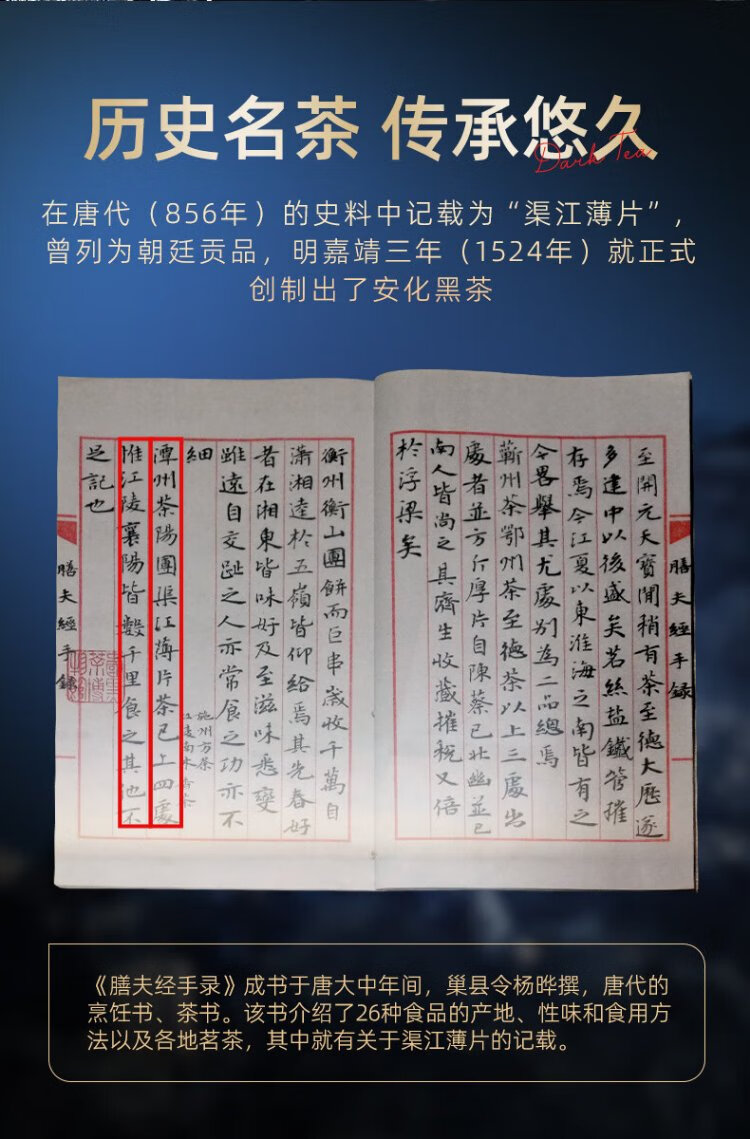 历史名茶 传承悠久
Dark Tea
在唐代（856年）的史料中记载为“渠江薄片”，
曾列为朝廷贡品，明嘉靖三年（1524年）就正式
创制出了安化黑茶
至開元天寶間稍有茶至德大歷遂
多建中以後盛矣茗絲盐鐵管榷
存焉今江夏以東淮海之南皆有之
今畧舉其尤處别為二品總焉
蘄州茶鄂州茶至德茶以上三處出
處者並方斤厚片自陳蔡已北幽並已
南人皆尚之其濟生收藏榷稅又倍
於浮梁矣
膳夫經手録
衡州衡山團餅而巨串歲收千萬自
瀟湘逹於五嶺皆仰給焉其先春好
者在湘東皆味好及至滋味悉變
雖遠自交趾之人亦常食之功亦不
細
施州方茶
潭州茶陽團渠江薄片茶已上四處
惟江陵襄陽皆數千里食之其他不
足記也
膳夫經手録
《膳夫经手录》成书于唐大中年间，巢县令杨晔撰，唐代的
烹饪书、茶书。该书介绍了26种食品的产地、性味和食用方
法以及各地茗茶，其中就有关于渠江薄片的记载。